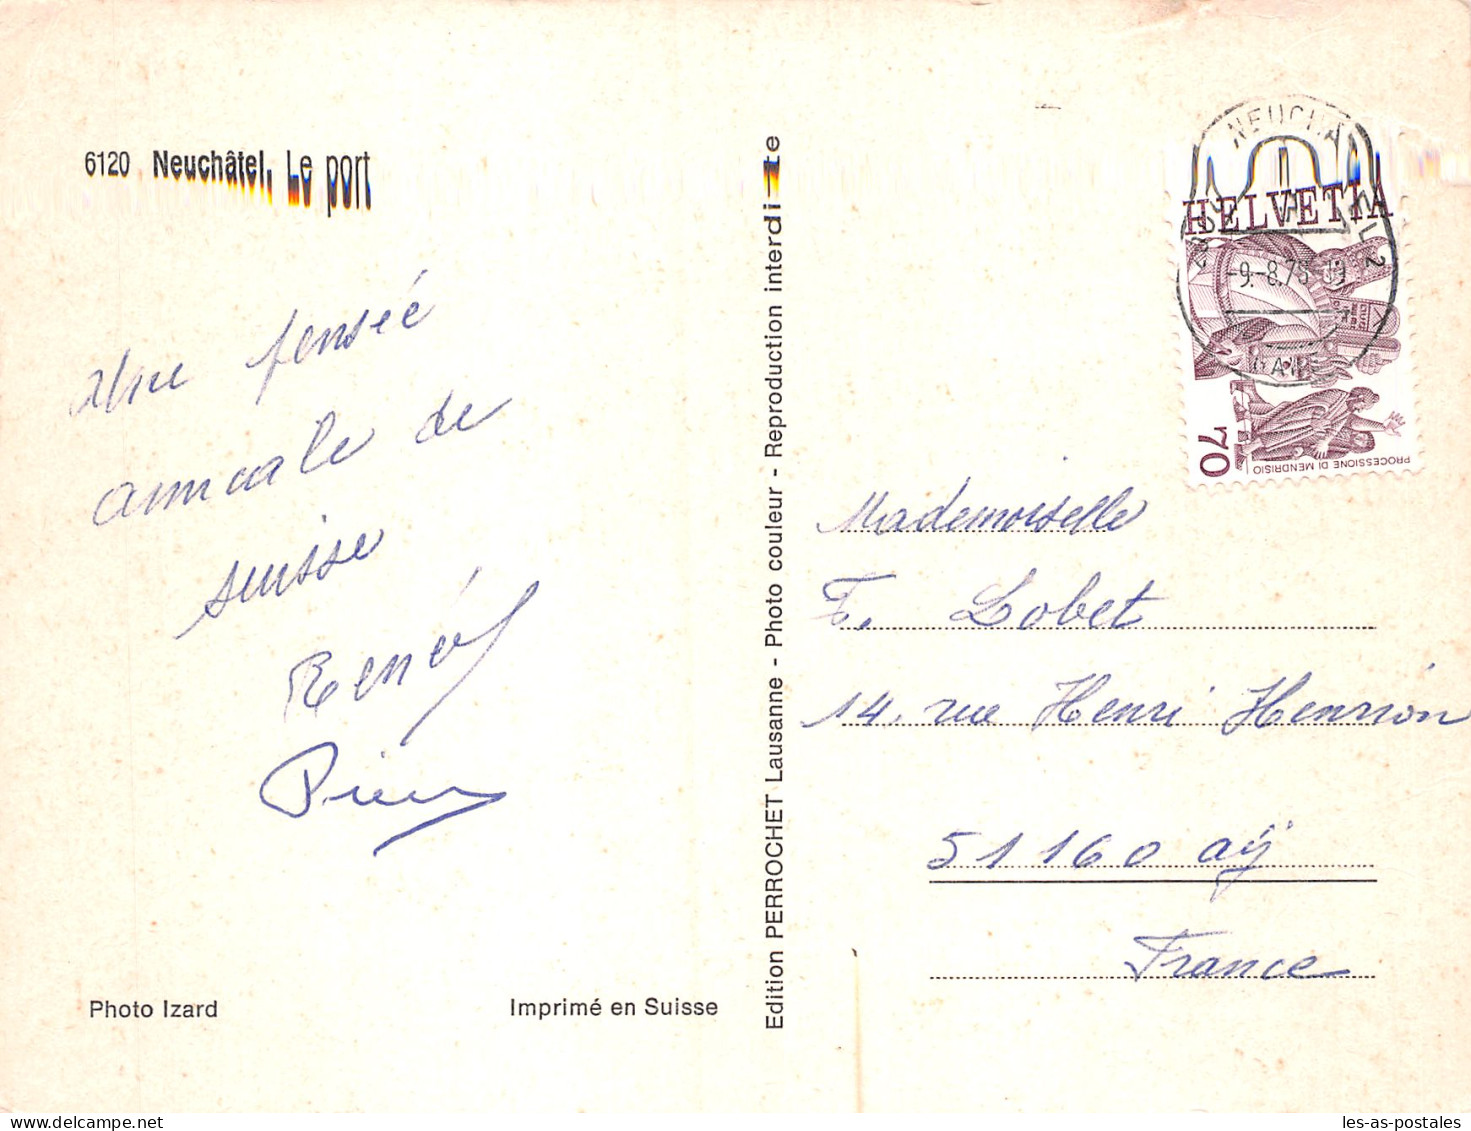 6120 Neuchâtel. Le port
Une pensée
amicale de
suisse
René
Pierre
Photo Izard
Imprimé en Suisse
Edition PERROCHET Lausanne - Photo couleur - Reproduction interdite
HELVETIA
70
PROCESSIONE DI MENDRISIO
NEUCHÂTEL 2
-9.-8.78-19
GARE
Mademoiselle
F. Lobet
14. rue Henri Henrion
51160 aÿ
France
les-as-postales